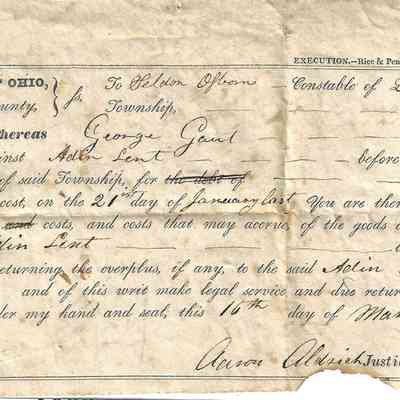 EXECUTION.—Rice & Pen
OHIO, } ss. To Seldon Osborn Constable of
ounty, Township,
hereas George Gaul
inst Adin Lent before
of said Township, for the debt of
cost, on the 21st day of January last You are ther
and costs, and costs that may accrue, of the goods
din Lent
eturning the overplus, if any, to the said Adin
and of this writ make legal service and due retur
der my hand and seal, this 16th day of Mar
Aaron Aldrich, Justi